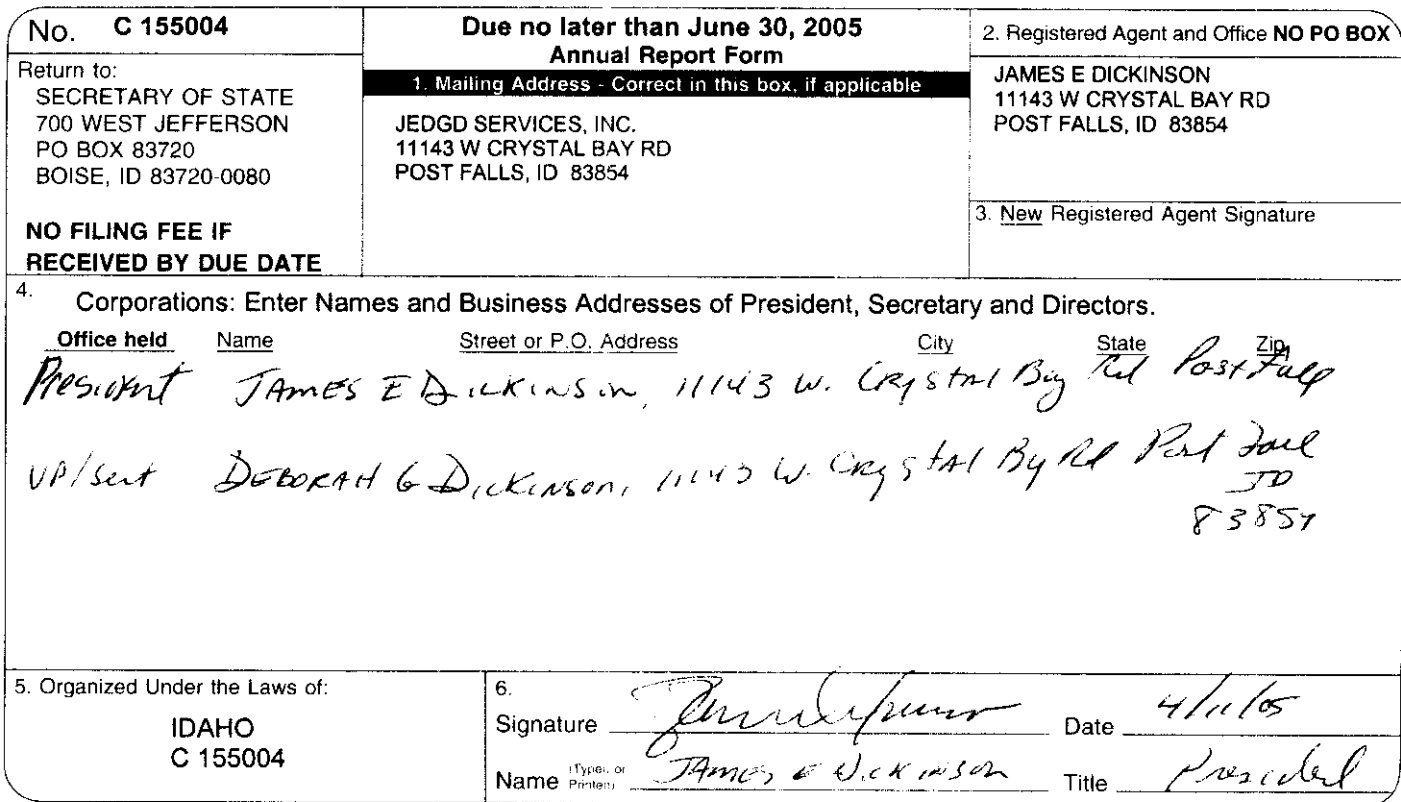 No. C 155004
Return to:
SECRETARY OF STATE
700 WEST JEFFERSON
PO BOX 83720
BOISE, ID 83720-0080
NO FILING FEE IF
RECEIVED BY DUE DATE
Due no later than June 30, 2005
Annual Report Form
1. Mailing Address - Correct in this box, if applicable
JEDGD SERVICES, INC.
11143 W CRYSTAL BAY RD
POST FALLS, ID 83854
2. Registered Agent and Office NO PO BOX
JAMES E DICKINSON
11143 W CRYSTAL BAY RD
POST FALLS, ID 83854
3. New Registered Agent Signature
4. Corporations: Enter Names and Business Addresses of President, Secretary and Directors.
Office held Name Street or P.O. Address City State Zip
President JAMES E DICKINSON, 11143 W. Crystal Bay Rd Post Falls
VP/Sect DEBORAH G DICKINSON, 11143 W. Crystal By Rd Post Falls
ID
83854
5. Organized Under the Laws of:
IDAHO
C 155004
6.
Signature Date 4/11/05
Name (Typed or Printed) JAMES E DICKINSON Title President